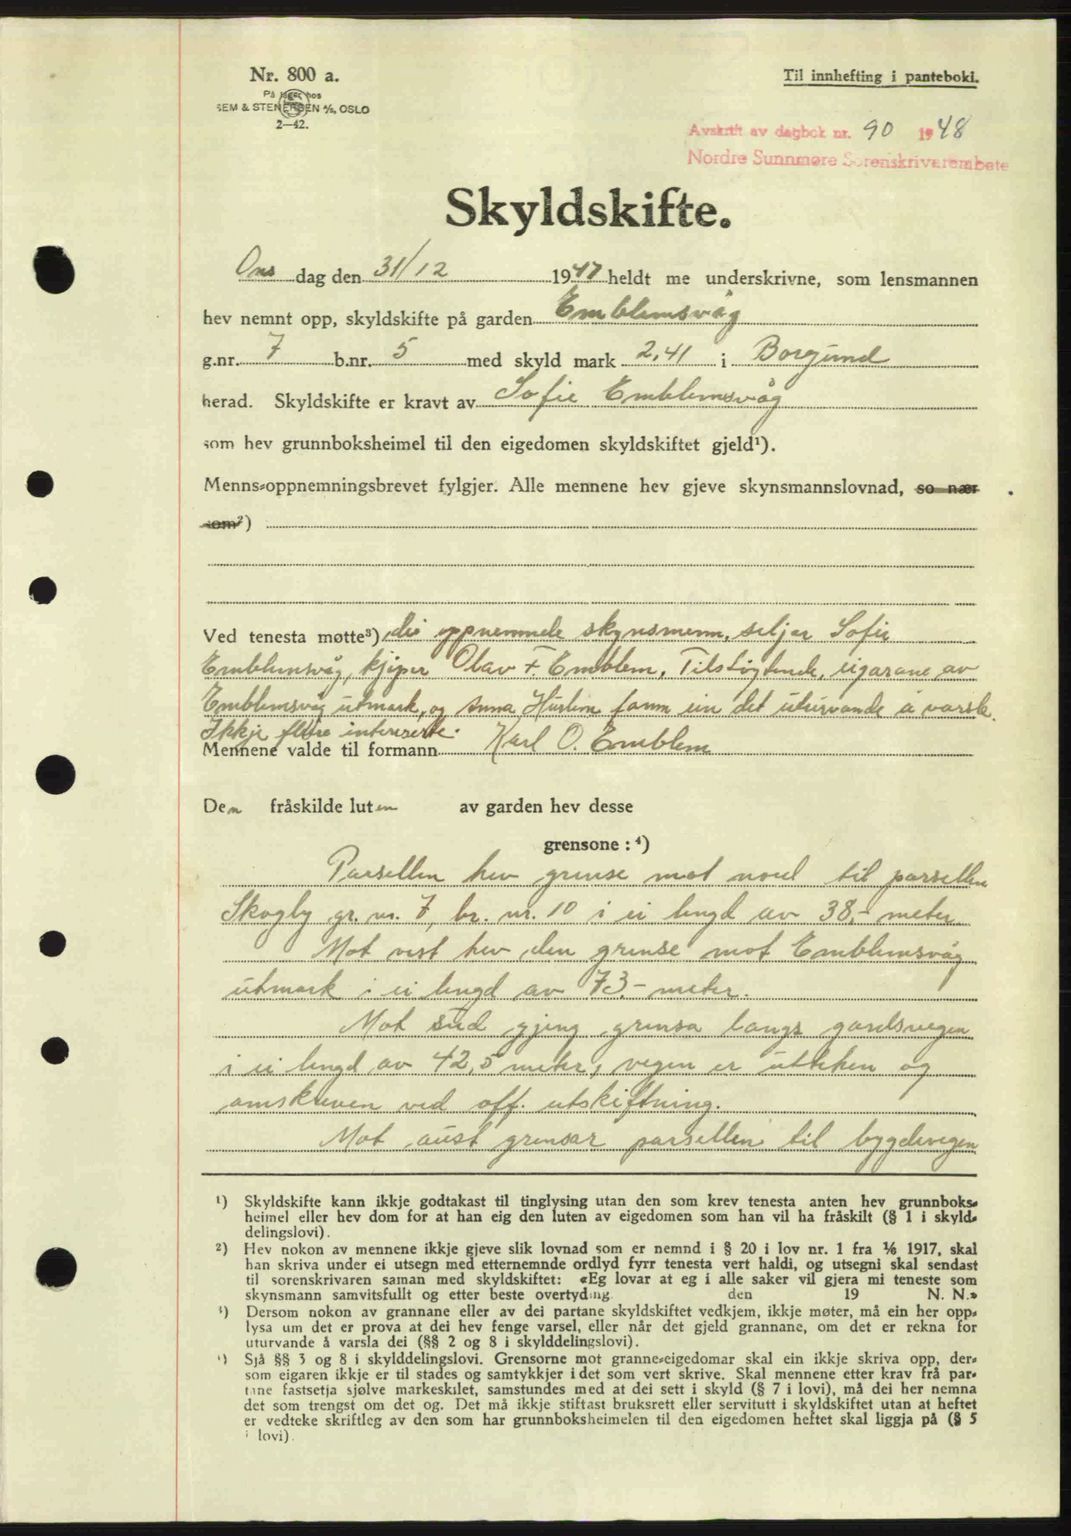 Nr. 800 a.
Til innhefting i panteboki.
På lager hos
SEM & STENERSEN A/S, OSLO
2—42.
Avskrift av dagbok nr. 90 1948
Nordre Sunnmøre Sorenskrivarembete
Skyldskifte.
Ons dag den 31/12 1947 heldt me underskrivne, som lensmannen
hev nemnt opp, skyldskifte på garden Emblemsvåg
g.nr. 7 b.nr. 5 med skyld mark 2,41 i Borgund
herad. Skyldskifte er kravt av Sofie Emblemsvåg
som hev grunnboksheimel til den eigedomen skyldskiftet gjeld¹).
Menns-oppnemningsbrevet fylgjer. Alle mennene hev gjeve skynsmannslovnad, so nær
som²)
Ved tenesta møtte³) dei oppnemnde skynsmenn, seljar Sofie
Emblemsvåg, kjøpar Olav F. Emblem. Tilstøytande eigarane av
Emblemsvåg utmark, og Anna fann ein det uturvande å varsle.
Ikkje fleire interesserte.
Mennene valde til formann Karl O. Emblem
Den fråskilde luten av garden hev desse
grensone : ⁴)
Parsellen hev grense mot nord til parsellen
Skogby gr. nr. 7, br. nr. 10 i ei lengd av 38,- meter.
Mot vest hev den grense mot Emblemsvåg
utmark i ei lengd av 73,- meter.
Mot sud gjeng grensa langs gardsvegen
i ei lengd av 42,5 meter, vegen er utteken og
omskreven ved off. utskiftning.
Mot aust grensar parsellen til bygdevegen
¹) Skyldskifte kann ikkje godtakast til tinglysing utan den som krev tenesta anten hev grunnboks-
heimel eller hev dom for at han eig den luten av eigedomen som han vil ha fråskilt (§ 1 i skyld-
delingslovi).
²) Hev nokon av mennene ikkje gjeve slik lovnad som er nemnd i § 20 i lov nr. 1 fra 1/6 1917, skal
han skriva under ei utsegn med etternemnde ordlyd fyrr tenesta vert haldi, og utsegni skal sendast
til sorenskrivaren saman med skyldskiftet: «Eg lovar at eg i alle saker vil gjera mi teneste som
skynsmann samvitsfullt og etter beste overtyding. den 19 N. N.»
³) Dersom nokon av grannane eller av dei partane skyldskiftet vedkjem, ikkje møter, må ein her opp-
lysa um det er prova at dei hev fenge varsel, eller når det gjeld grannane, om det er rekna for
uturvande å varsla dei (§§ 2 og 8 i skylddelingslovi).
⁴) Sjå §§ 3 og 8 i skylddelingslovi. Grensorne mot granne-eigedomar skal ein ikkje skriva opp, der-
som eigaren ikkje er til stades og samtykkjer i det som vert skrive. Skal mennene etter krav frå par-
tane fastsetja sjølve markeskilet, samstundes med at dei sett i skyld (§ 7 i lovi), må dei her nemna
det som trengst om det og. Det må ikkje stiftast bruksrett eller servitutt i skyldskiftet utan at heftet
er vedteke skriftleg av den som har grunnboksheimelen til den eigedomen heftet skal liggja på (§ 5
i lovi).